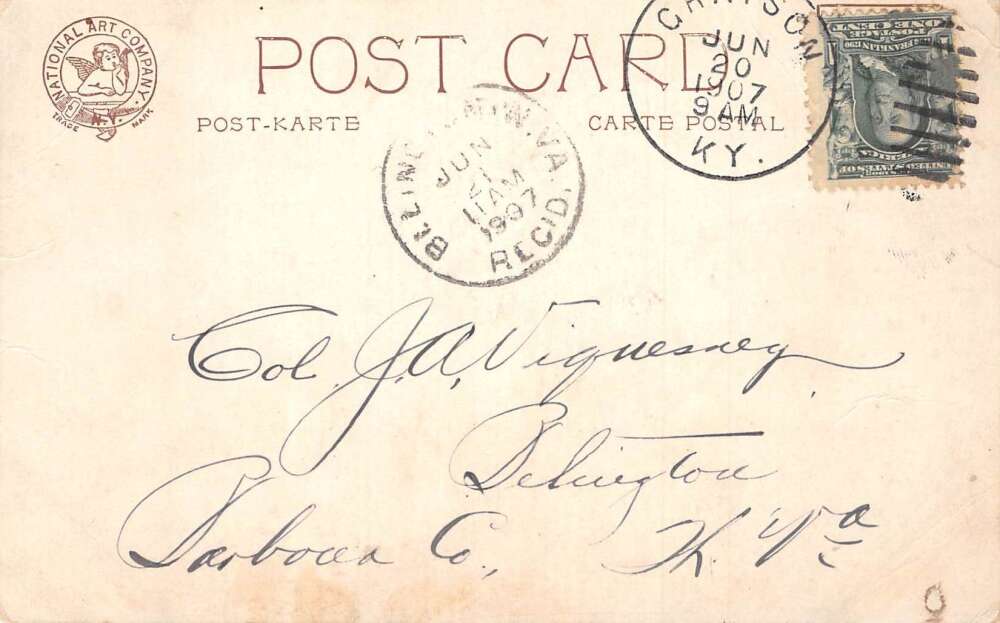 NATIONAL ART COMPANY.
N.Y.
TRADE MARK
POST CARD
POST-KARTE
CARTE POSTAL
GRAYSON
JUN
20
1907
9 AM
KY.
W. VA.
JUN
11 AM
1907
REC'D.
ONE CENT
POSTAGE
FRANKLIN
Col. J. A. Viquesney
Belington
Barbour Co., W. Va